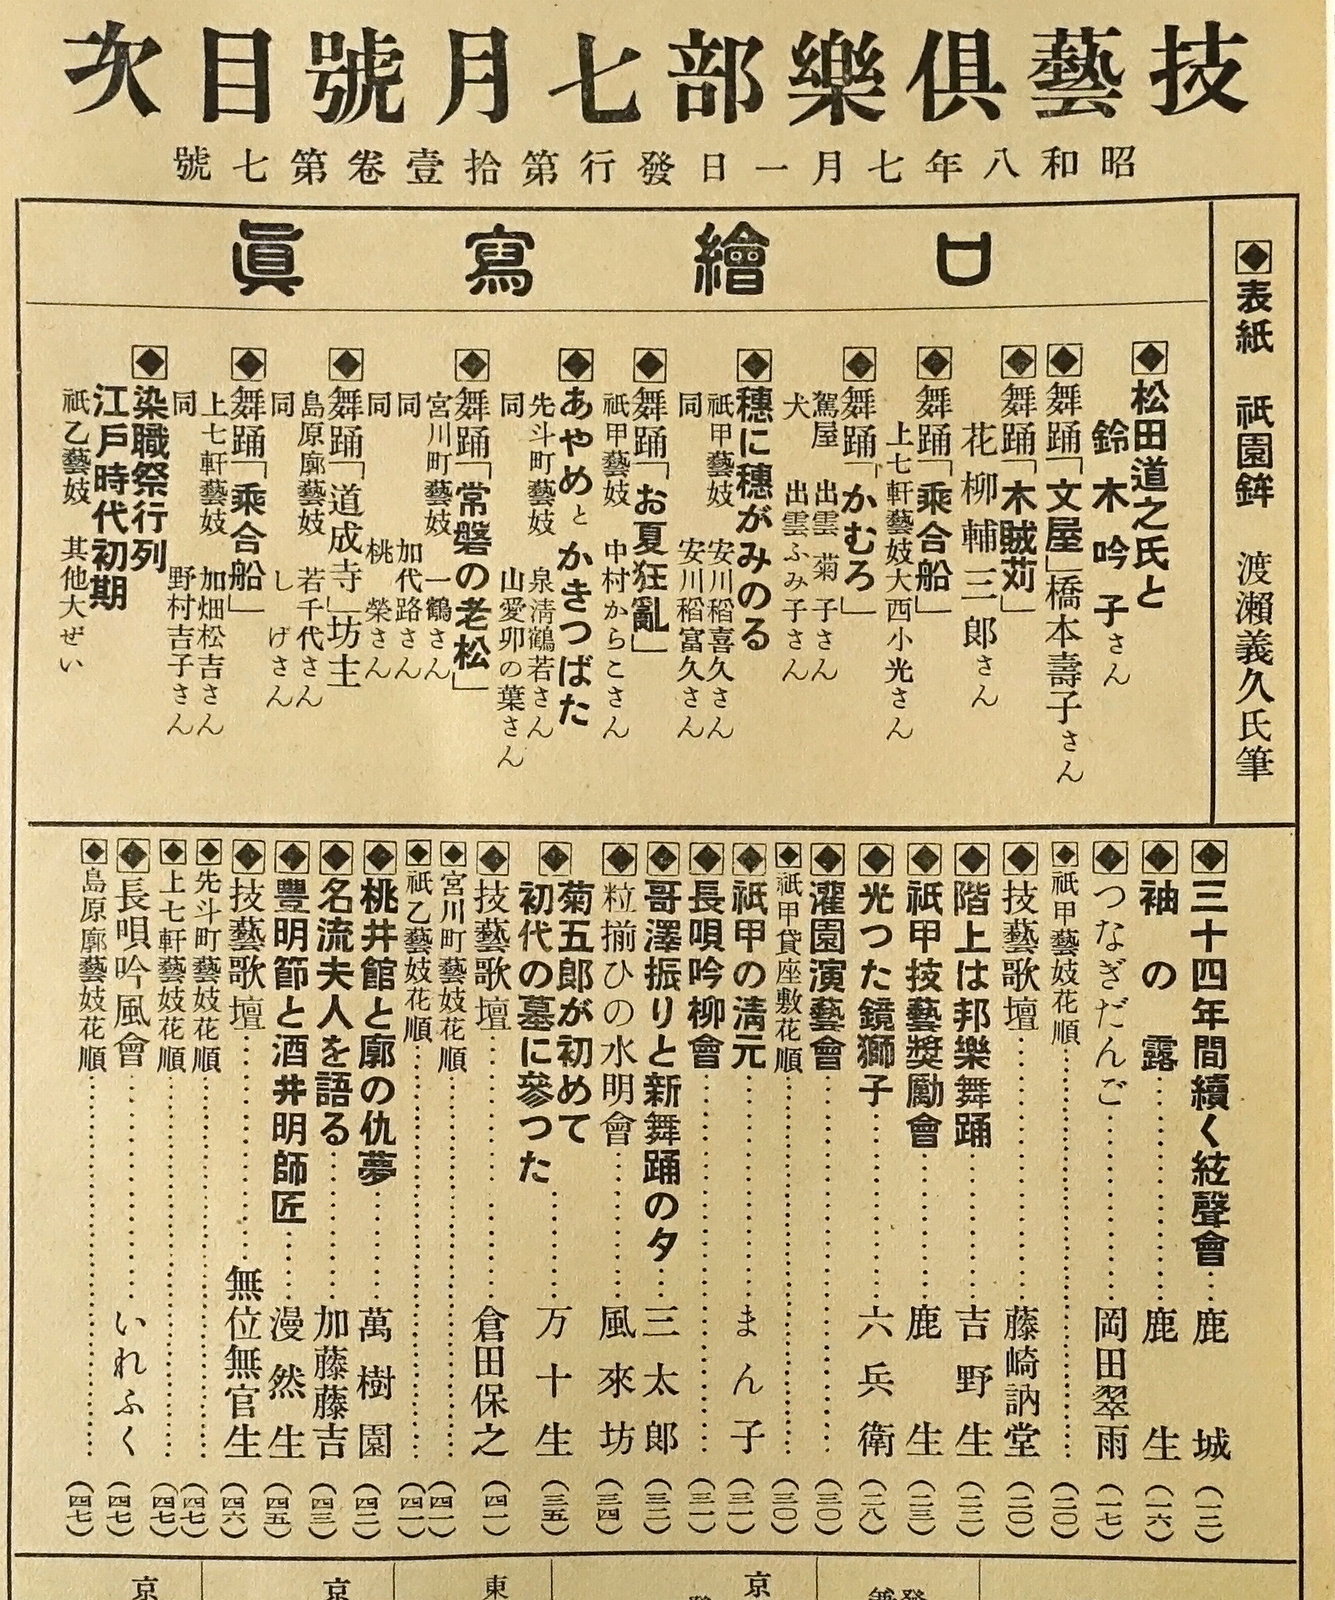 技藝倶樂部七月號目次
昭和八年七月一日發行第拾壹卷第七號
◆表紙 祇園鉾 渡瀨義久氏筆
口繪寫眞
◆松田道之氏と
鈴木吟子さん
◆舞踊「文屋」橋本壽子さん
◆舞踊「木賊苅」
花柳輔三郎さん
◆舞踊「乘合船」
上七軒藝妓大西小光さん
◆舞踊「かむろ」
駕屋 出雲菊子さん
犬 出雲ふみ子さん
◆穗に穗がみのる
祇甲藝妓 安川稻喜久さん
同 安川稻富久さん
◆舞踊「お夏狂亂」
祇甲藝妓 中村からこさん
◆あやめとかきつばた
先斗町藝妓 泉淸鶴若さん
同 山愛卯の葉さん
◆舞踊「常磐の老松」
宮川町藝妓 一鶴さん
同 加代路さん
同 桃榮さん
◆舞踊「道成寺」坊主
島原廓藝妓 若千代さん
同 しげさん
◆舞踊「乘合船」
上七軒藝妓 加畑松吉さん
同 野村吉子さん
◆染職祭行列
江戸時代初期
祇乙藝妓 其他大ぜい
◆三十四年間續く絃聲會…鹿城(一二)
◆袖の露……鹿生(一六)
◆つなぎだんご……岡田翠雨(一七)
◆祇甲藝妓花順……(二〇)
◆技藝歌壇……藤崎訥堂(二〇)
◆階上は邦樂舞踊……吉野生(二二)
◆祇甲技藝奬勵會……鹿生(二三)
◆光つた鏡獅子……六兵衛(二八)
◆灌園演藝會……(三〇)
◆祇甲貸座敷花順……(三〇)
◆祇甲の淸元……まん子(三一)
◆長唄吟柳會……(三一)
◆哥澤振りと新舞踊の夕…三太郎(三二)
◆粒揃ひの水明會……風來坊(三四)
◆菊五郎が初めて
初代の墓に參つた……万十生(三五)
◆技藝歌壇……倉田保之(四一)
◆宮川町藝妓花順……(四一)
◆祇乙藝妓花順……(四一)
◆桃井館と廓の仇夢……萬樹園(四二)
◆名流夫人を語る……加藤藤吉(四三)
◆豐明節と酒井明師匠……漫然生(四五)
◆技藝歌壇……無位無官生(四六)
◆先斗町藝妓花順……(四七)
◆上七軒藝妓花順……(四七)
◆長唄吟風會……いれふく(四七)
◆島原廓藝妓花順……(四七)
京
東
京
京